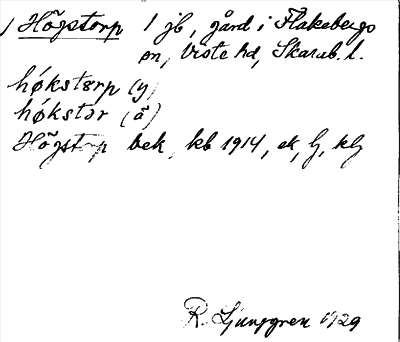 Högstorp 1 jb, gård i Flakebergs
sn, Viste hd, Skarab. l.
høkstærp (y)
høkstər (ä)
Högstorp bek, kb 1914, ek, lj, klj
R. Ljunggren 1929